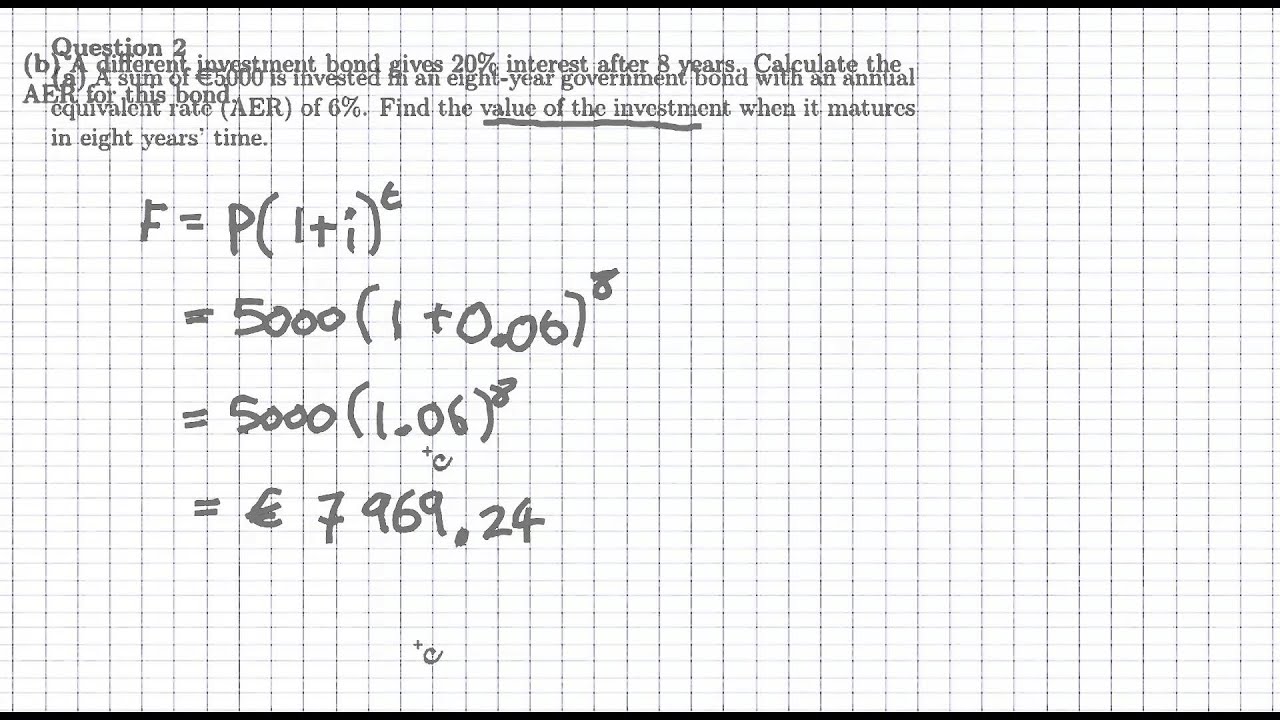 Question 2
(b) A different investment bond gives 20% interest after 8 years. Calculate the
(a) A sum of €5000 is invested in an eight-year government bond with an annual
AER for this bond.
equivalent rate (AER) of 6%. Find the value of the investment when it matures
in eight years' time.
F = P(1+i)^t
= 5000(1+0.06)^8
= 5000(1.06)^8
= € 7969.24